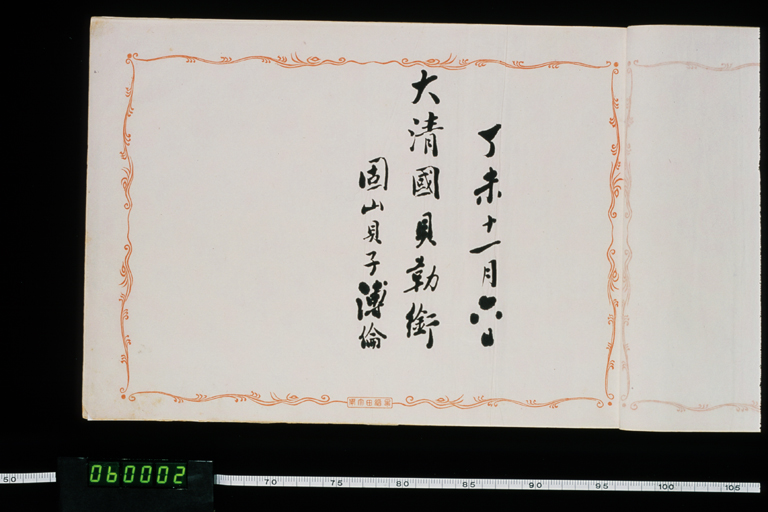 丁未十一月六日
大清國貝勒銜
固山貝子溥倫
060002
50
70
75
80
85
90
95
100
105